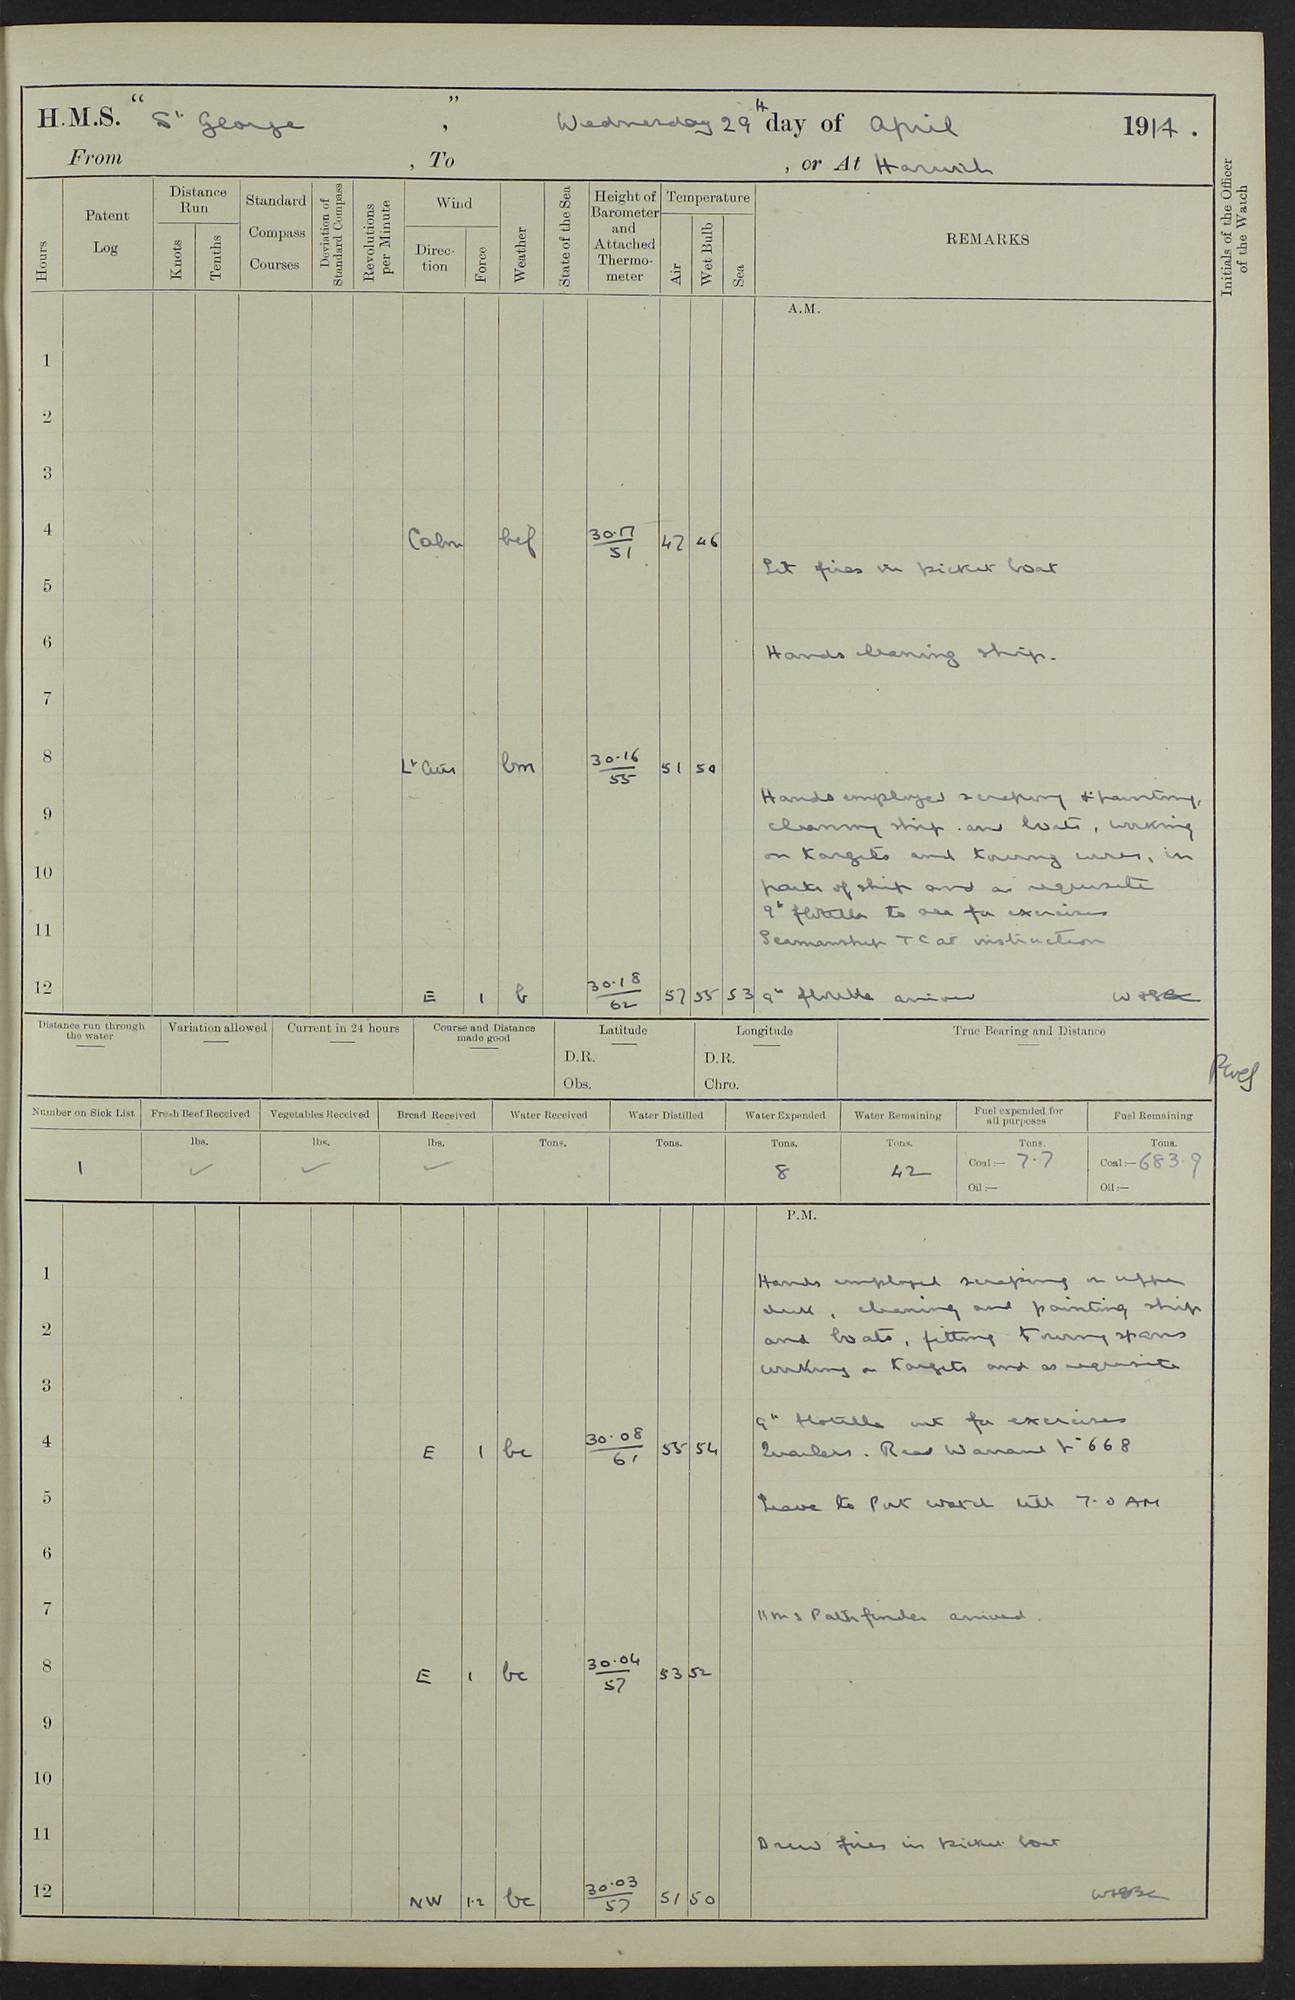 H.M.S. "St George", Wednesday 29th day of April 1914.
From , To , or At Harwich
Hours
Patent Log
Distance Run
Knots
Tenths
Standard Compass Courses
Deviation of Standard Compass
Revolutions per Minute
Wind
Direction
Force
Weather
State of the Sea
Height of Barometer and Attached Thermometer
Temperature
Air
Wet Bulb
Sea
REMARKS
Initials of the Officer of the Watch
A.M.
1
2
3
4 Calm bcf 30.17/51 47 46
Lit fires in picket boat
5
6
Hands cleaning ship.
7
8 Lt airs bm 30.16/55 51 50
Hands employed scraping & painting,
9
cleaning ship and boats, working
on targets and towing wires, in
10
parts of ship and as requisite
9th flotilla to sea for exercises
11
Seamanship T C at instruction
12 E 1 b 30.18/62 57 55 53 9th flotilla arrived
Distance run through the water
Variation allowed
Current in 24 hours
Course and Distance made good
Latitude
D.R.
Obs.
Longitude
D.R.
Chro.
True Bearing and Distance
Number on Sick List
Fresh Beef Received
Vegetables Received
Bread Received
Water Received
Water Distilled
Water Expended
Water Remaining
Fuel expended for all purposes
Fuel Remaining
lbs. lbs. lbs. Tons. Tons. Tons. Tons. Tons. Tons.
1 ✓ ✓ ✓ 8 42 Coal:— 7.7 Coal:— 683.9
Oil:— Oil:—
P.M.
1
Hands employed scraping on upper
deck, cleaning and painting ship
2
and boats, fitting towing spans
working on targets and as requisite
3
9th Flotilla out for exercises
4 E 1 bc 30.08/61 55 54 Quarters. Read Warrant No 668
5
Leave to Port watch till 7.0 AM
6
7
HMS Pathfinder arrived.
8 E 1 bc 30.04/57 53 52
9
10
11
Drew fires in picket boat
12 NW 1.2 bc 30.03/57 51 50